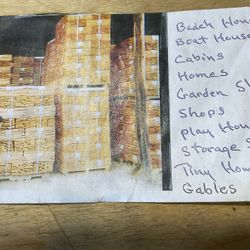 Beach
Boat House
Cabins
Homes
Garden
Shops
play
Storage
Tiny
Gables